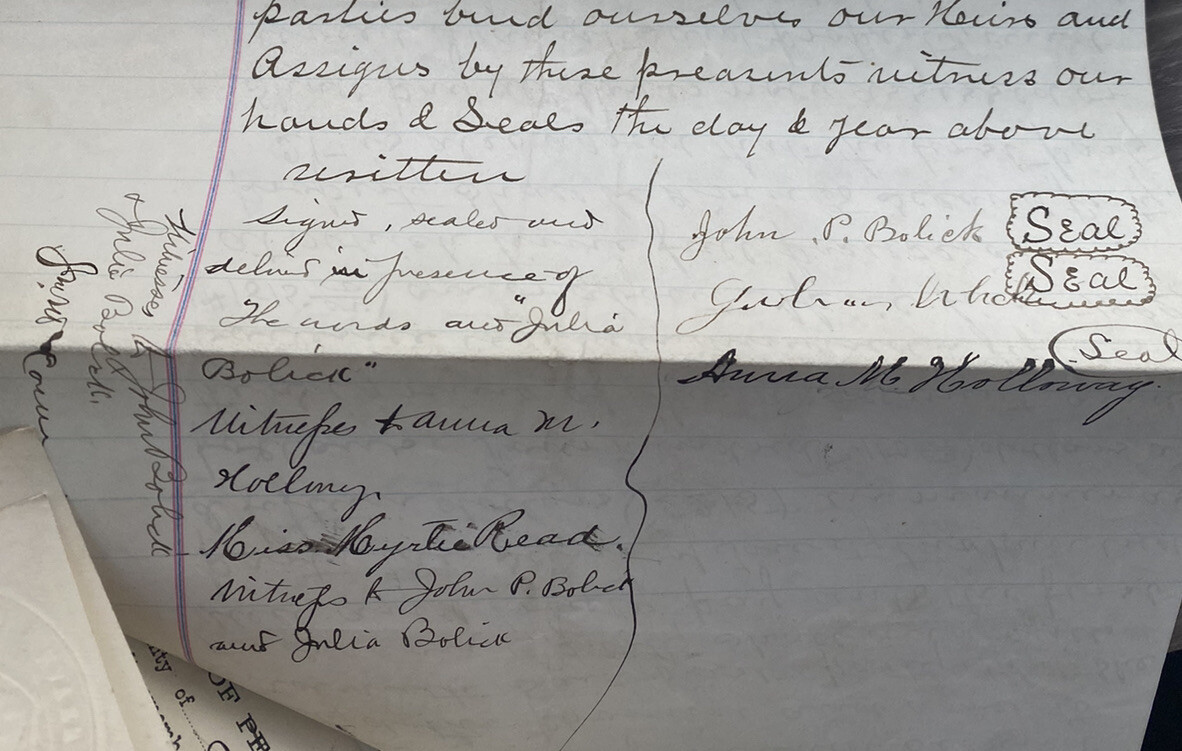 parties bind ourselves our Heirs and
Assigns by these preasents witness our
hands & Seals the day & year above
written
signed, sealed and
delivrd in presence of
The words and "Julia
Bolick"
Witness to anna M.
Holloway.
Miss Myrtie Read.
Witness to John P. Bolick
and Julia Bolick
John P. Bolick Seal
Seal
Seal
Anna M Holloway.
Witnesses to John Bolick
& Julia Bolick.
ity of
OF PE